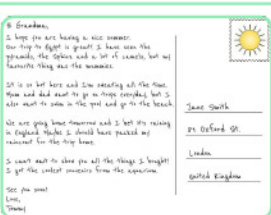 Hi Grandma,
I hope you are having a nice summer.
Our trip to Egypt is great! I have seen the
pyramids, the Sphinx and a lot of camels, but my
favourite thing was the mummies.
It is so hot here and I'm sweating all the time.
Mum and dad want to go on trips everyday, but I
also want to swim in the pool and go to the beach.
We are going home tomorrow and I bet it's raining
in England. Maybe I should have packed my
raincoat for the trip home.
I can't wait to show you all the things I bought!
I got the coolest souvenirs from the
See you soon!
Love,
Tommy
Jane Smith
Oxford St.
London
United Kingdom